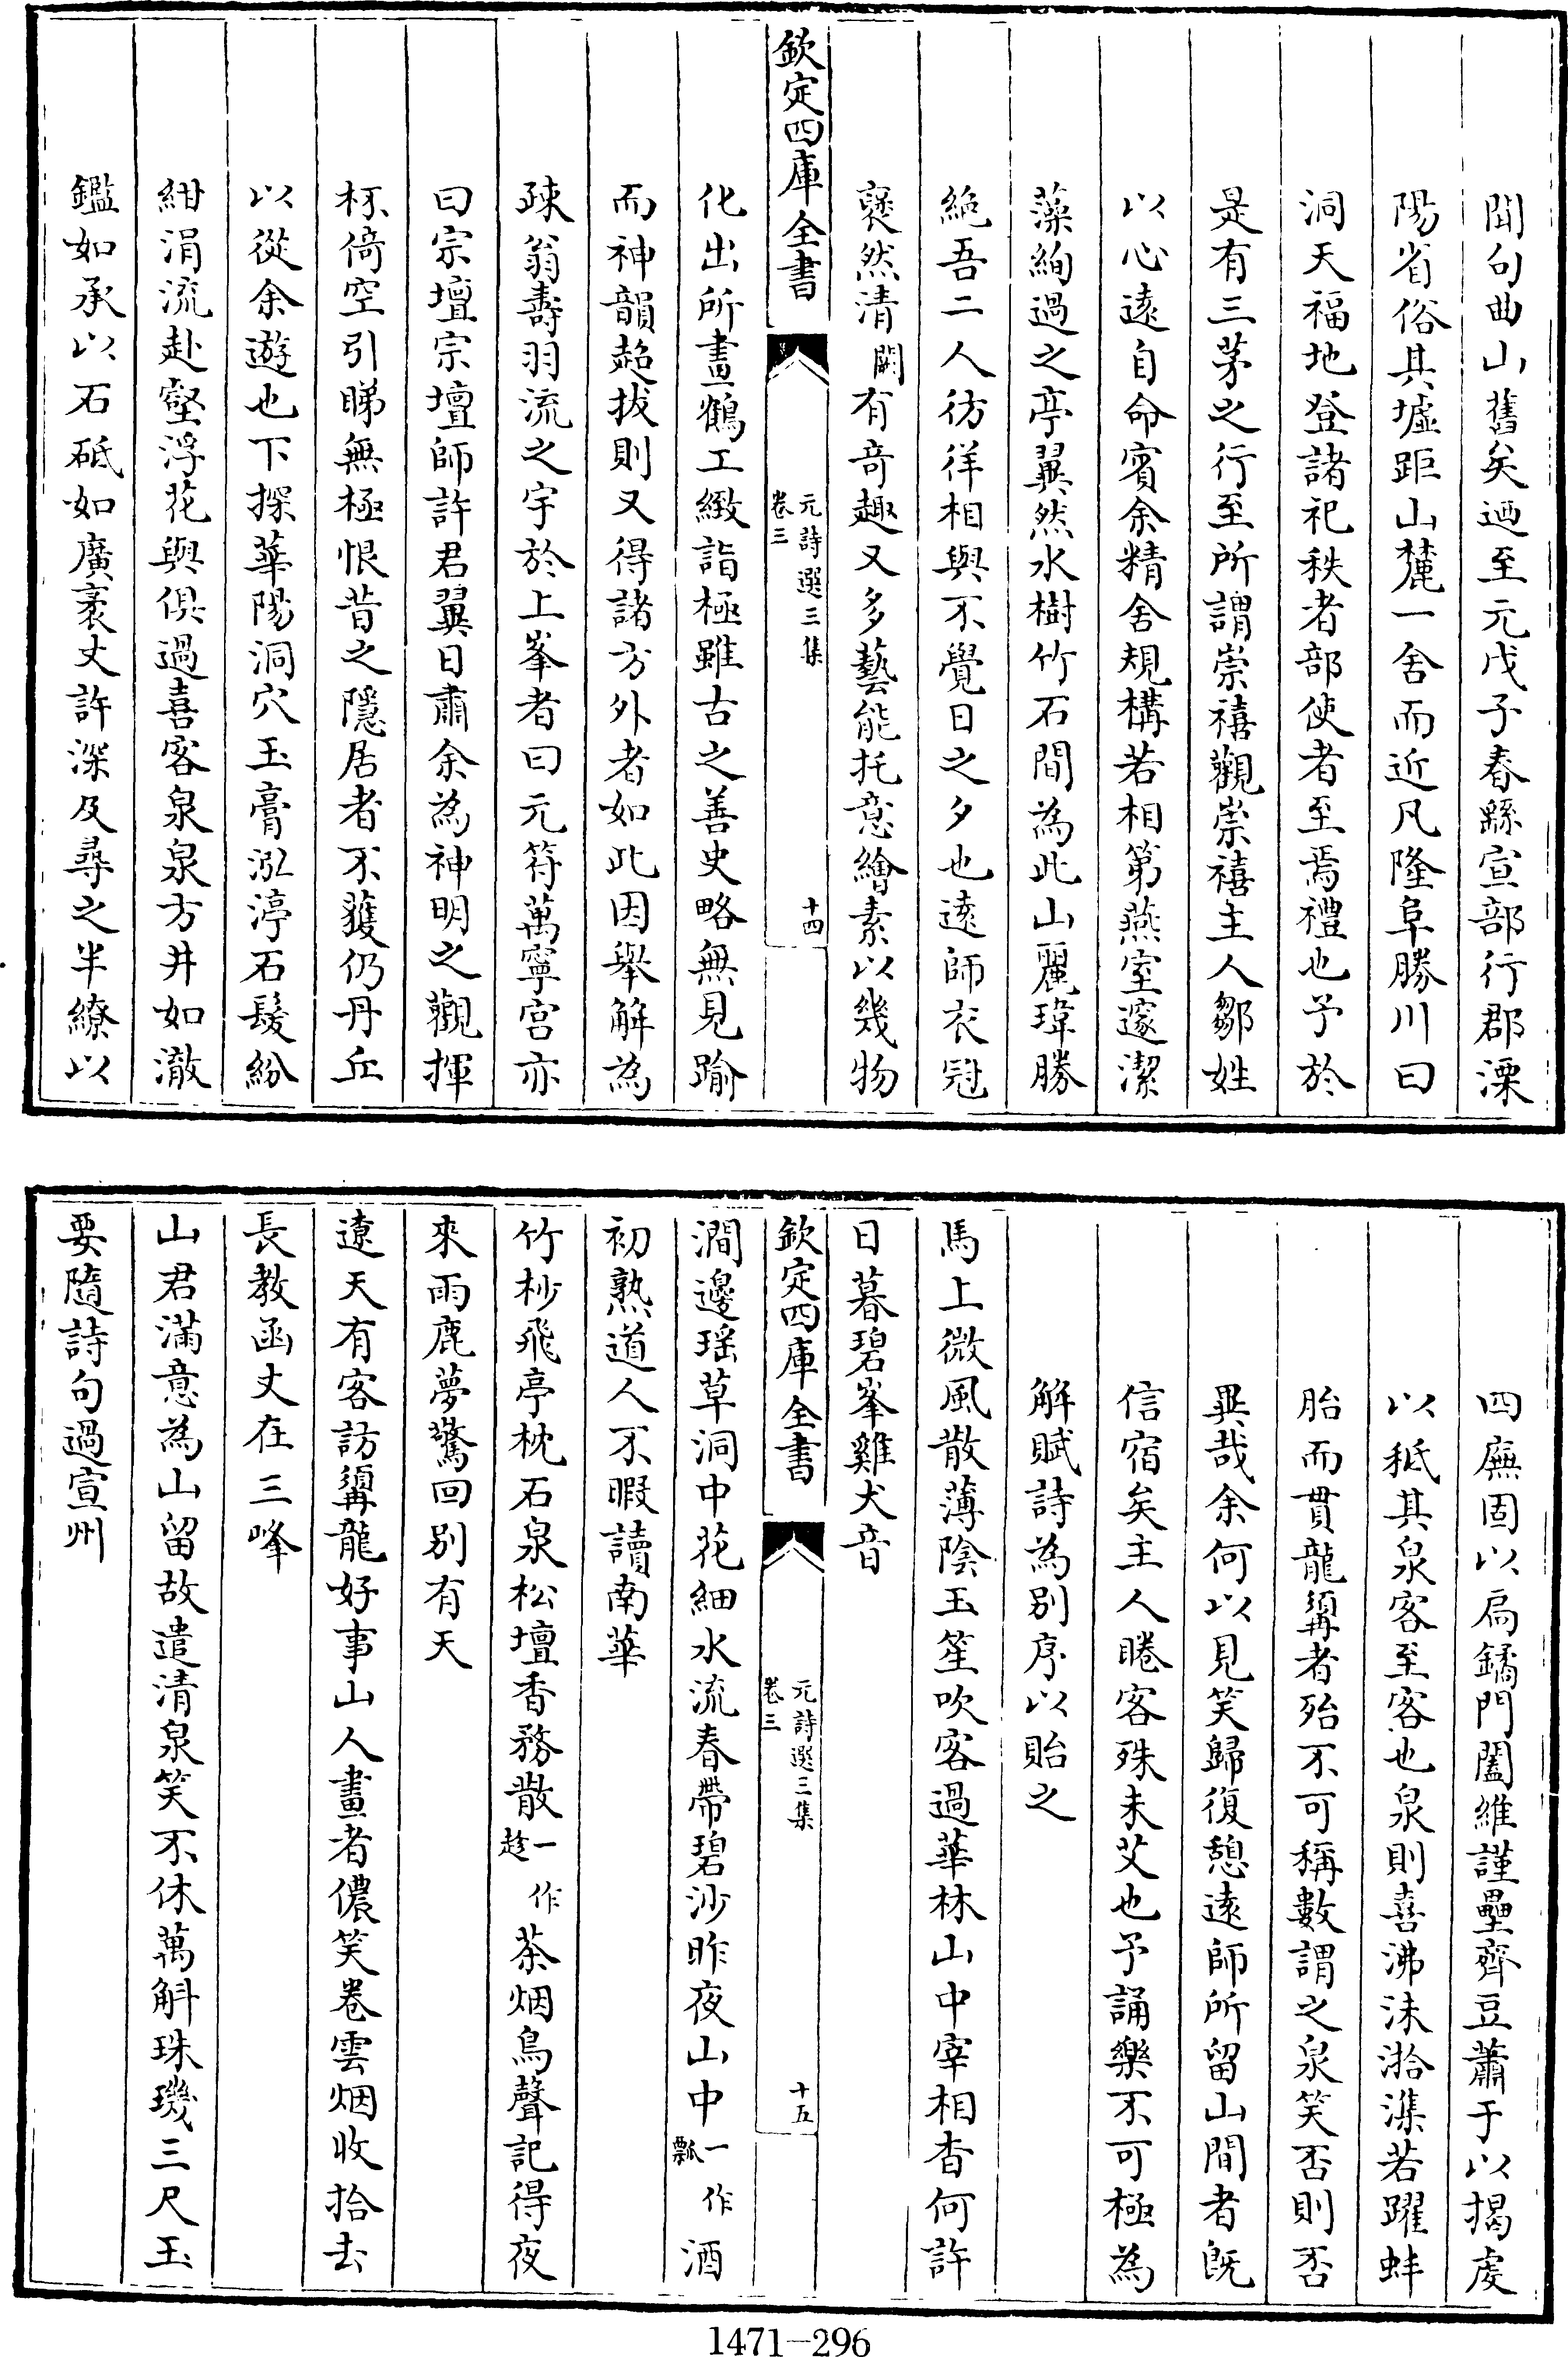 聞句曲山舊矣迺至元戊子春繇宣部行郡溧
陽省俗其墟距山麓一舍而近凡隆阜勝川曰
洞天福地登諸祀秩者部使者至焉禮也予於
是有三茅之行至所謂崇禧觀崇禧主人鄒姓
以心遠自命賓余精舍規構若相第燕室邃潔
藻絢過之亭翼然水樹竹石間為此山麗瑋勝
絶吾二人彷徉相與不覺日之夕也遠師衣冠
褎然清闕有竒趣又多藝能托意繪素以幾物
欽定四庫全書
元詩選三集
卷三
十四
化出所畫鶴工緻詣極雖古之善史略無見踰
而神韻超拔則又得諸方外者如此因舉解為
疎翁壽羽流之宇於上峯者曰元符萬寧宫亦
曰宗壇宗壇師許君翼日肅余為神明之觀揮
杯倚空引睇無極恨昔之隱居者不獲仍丹丘
以從余遊也下探華陽洞穴玉膏泓渟石髮紛
紺涓流赴壑浮花與俱過喜客泉泉方井如澈
鑑如承以石砥如廣袤丈許深及尋之半繚以
四廡固以扃鐍門闔維謹壘齊豆蕭于以揭虔
以秪其泉客至客也泉則喜沸沬湁潗若躍蚌
胎而貫龍頷者殆不可稱數謂之泉笑否則否
異哉余何以見笑歸復憩遠師所留山間者既
信宿矣主人睠客殊未艾也予誦樂不可極為
解賦詩為别序以貽之
馬上微風散薄隂玉笙吹客過華林山中宰相杳何許
日暮碧峯雞犬音
欽定四庫全書
元詩選三集
卷三
十五
澗邊瑶草洞中花細水流春帶碧沙昨夜山中一作瓢酒
初熟道人不暇讀南華
竹杪飛亭枕石泉松壇香務散一作趁茶烟鳥聲記得夜
來雨鹿夢驚回别有天
遼天有客訪驪龍好事山人畫者儂笑卷雲烟收拾去
長教函丈在三峰
山君滿意為山留故遣清泉笑不休萬斛珠璣三尺玉
要隨詩句過宣州
1471-296